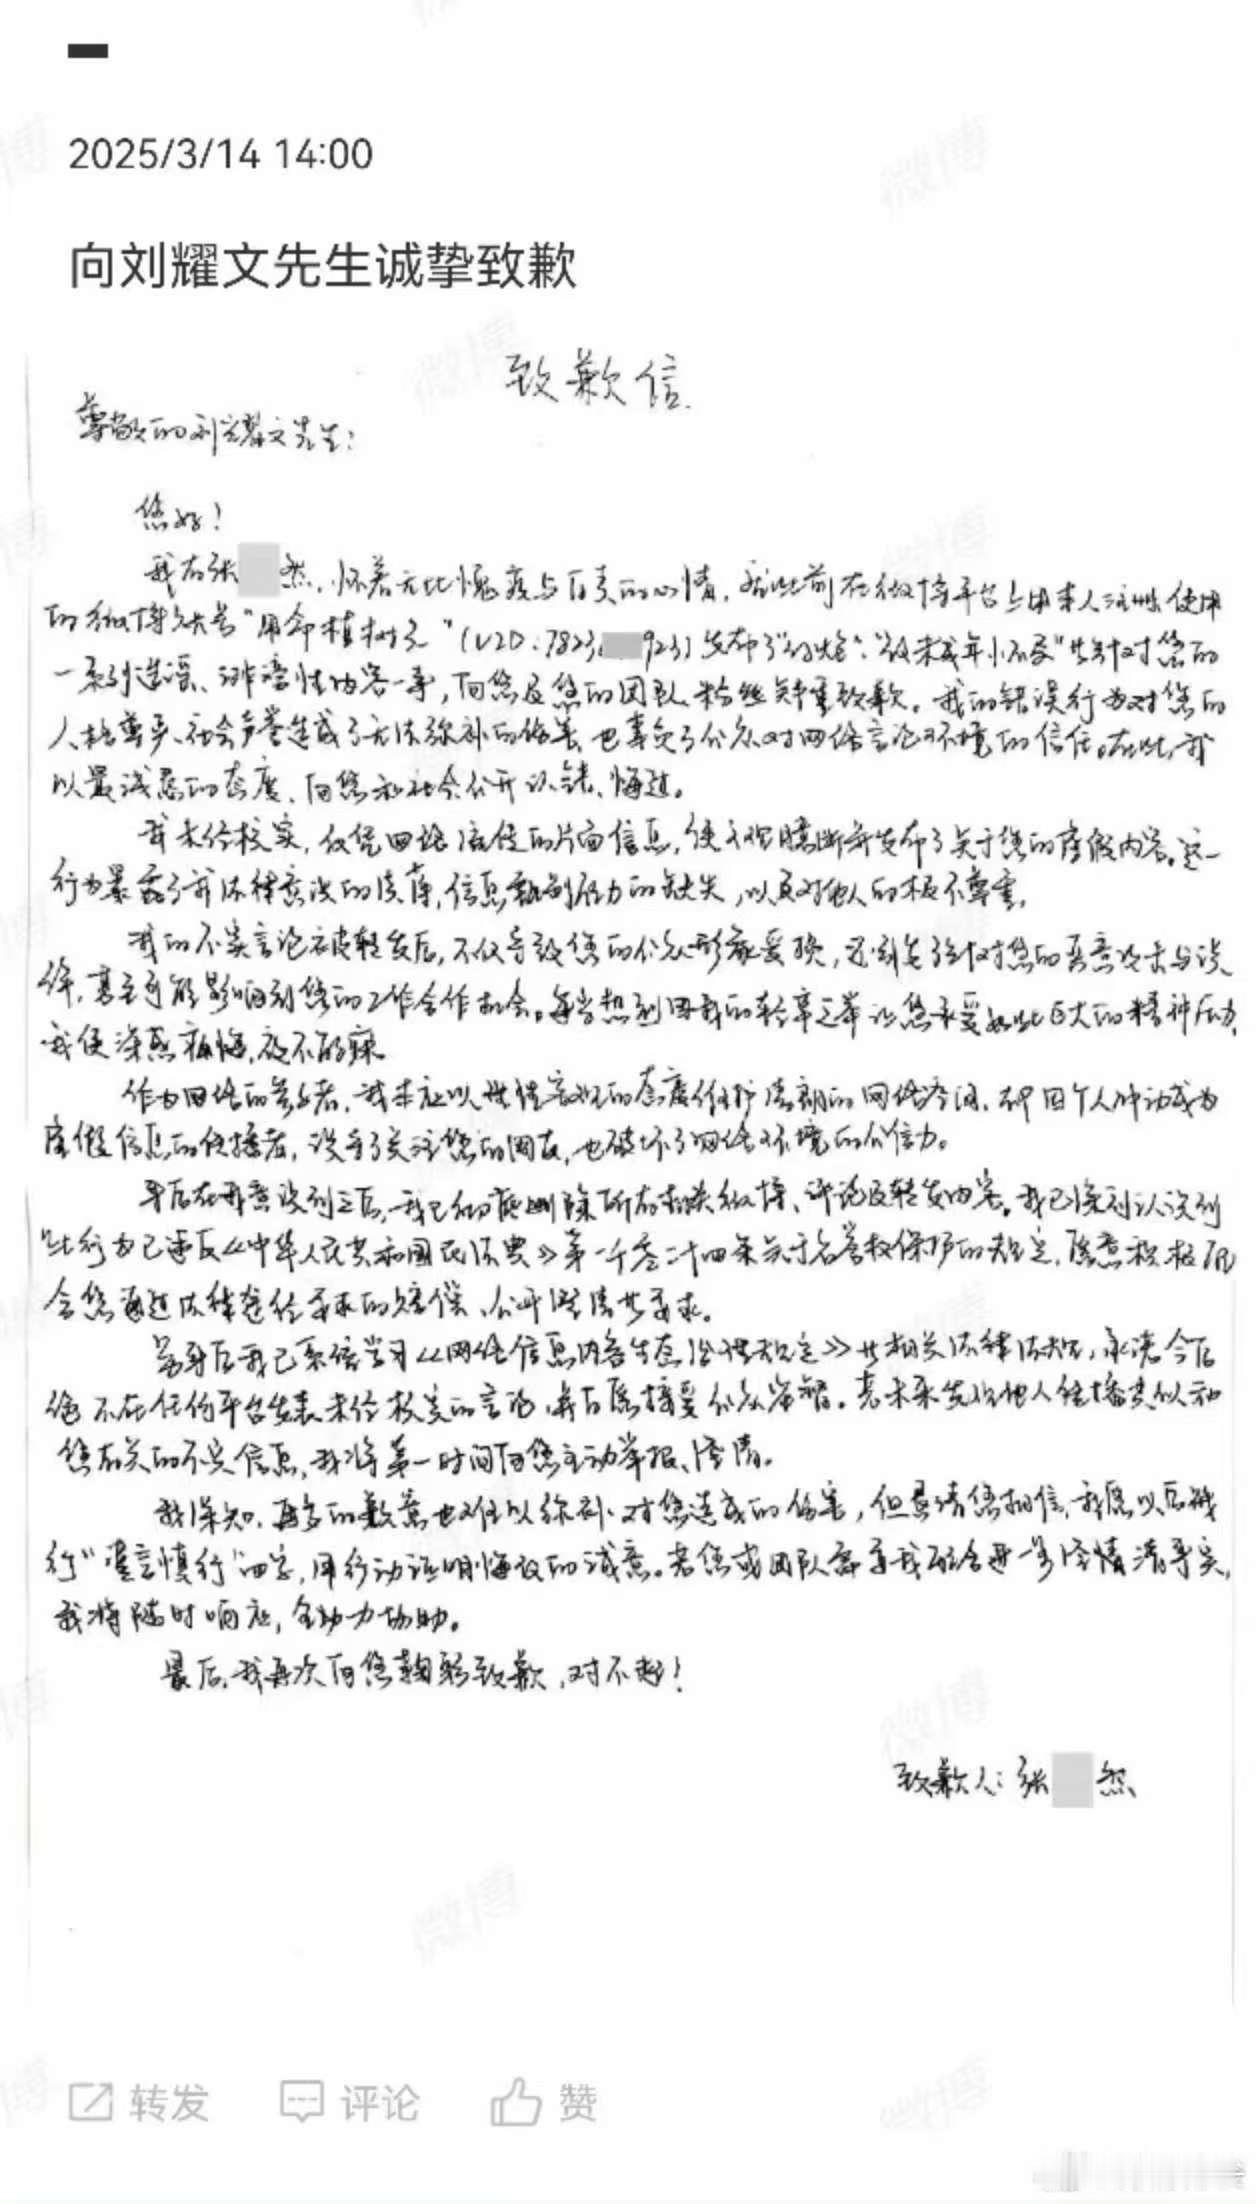 2025/3/14 14:00
向刘耀文先生诚挚致歉
致歉信
尊敬的刘耀文先生:
您好!
我在张 然,怀着无比愧疚与自责的心情,就此前在微博平台上用本人注册使用
的微博账号"用命植树之"(UID:7823 923)发布了 "致未成年怀孕"等针对您的
一系列造谣、诽谤性内容一事,向您及您的团队、粉丝郑重致歉。我的错误行为对您的
人格尊严、社会声誉造成了无法弥补的伤害,也辜负了公众对网络言论环境的信任。在此,我
以最诚恳的态度,向您和社会公开认错、悔过。
我未经核实,仅凭网络流传的片面信息,便主观臆断并发布了关于您的虚假内容。这一
行为暴露了我法律意识的淡薄,信息甄别能力的缺失,以及对他人的极不尊重。
我的不实言论被转发后,不仅导致您的公众形象受损,还引发了针对您的恶意攻击与误
解,甚至可能影响到您的工作合作机会。每当想到因我的轻率之举让您承受如此巨大的精神压力,
我便深感痛悔,夜不能寐。
作为网络的参与者,我未能以理性客观的态度维护清朗的网络空间,却因个人冲动成为
虚假信息的传播者,误导了关注您的网友,也破坏了网络环境的公信力。
事后在我意识到之后,我已彻底删除所有相关微博、评论及转发内容。我已深刻认识到
此行为已违反《中华人民共和国民法典》第一千零二十四条关于名誉权保护的规定,愿意积极配
合您通过法律途径要求的赔偿、公开澄清等要求。
事后我已系统学习《网络信息内容生态治理规定》等相关法律法规,承诺今后
绝不在任何平台发表未经核实的言论,并自愿接受公众监督。若未来发现他人传播类似和
您有关的不实信息,我将第一时间向您主动举报、澄清。
我深知,再多的歉意也难以弥补对您造成的伤害,但恳请您相信,我愿以后践
行"谨言慎行"四字,用行动证明悔改的诚意。若您或团队需要我配合进一步澄清 事实,
我将随时响应,全力协助。
最后,我再次向您鞠躬致歉,对不起!
致歉人:张 然
转发 评论 赞
微博